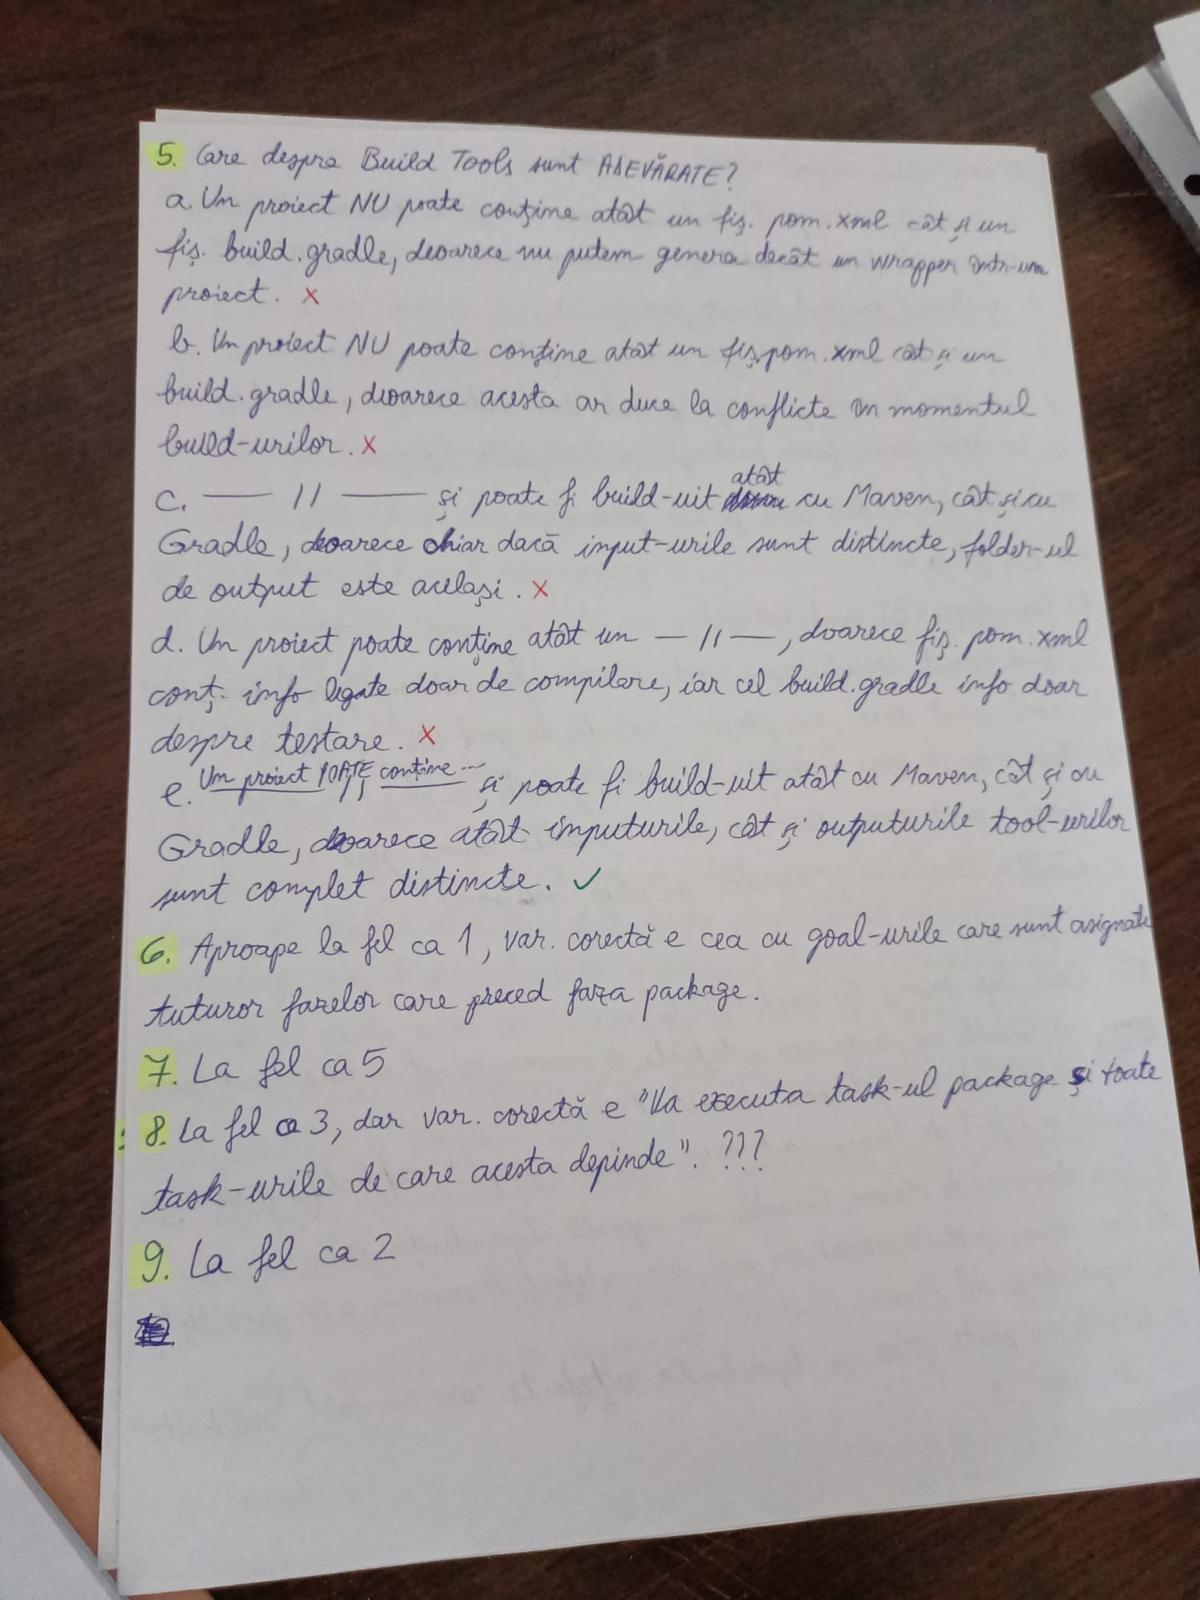 5. Care despre Build Tools sunt ADEVĂRATE?
a. Un proiect NU poate conține atât un fiș. pom.xml cât și un
fiș. build.gradle, deoarece nu putem genera decât un wrapper într-un
proiect. x
b. Un proiect NU poate conține atât un fiș.pom.xml cât și un
build.gradle, deoarece acesta ar duce la conflicte în momentul
build-urilor. x
c. — // — și poate fi build-uit atât cu Maven, cât și cu
Gradle, deoarece chiar dacă input-urile sunt distincte, folder-ul
de output este același. x
d. Un proiect poate conține atât un — // —, deoarece fiș. pom.xml
conț. info legate doar de compilare, iar cel build.gradle info doar
despre testare. x
e. Un proiect POATE conține ... și poate fi build-uit atât cu Maven, cât și cu
Gradle, deoarece atât inputurile, cât și outputurile tool-urilor
sunt complet distincte. ✓
6. Aproape la fel ca 1, var. corectă e cea cu goal-urile care sunt asignate
tuturor fazelor care preced faza package.
7. La fel ca 5
8. La fel ca 3, dar var. corectă e "Va executa task-ul package și toate
task-urile de care acesta depinde". ???
9. La fel ca 2